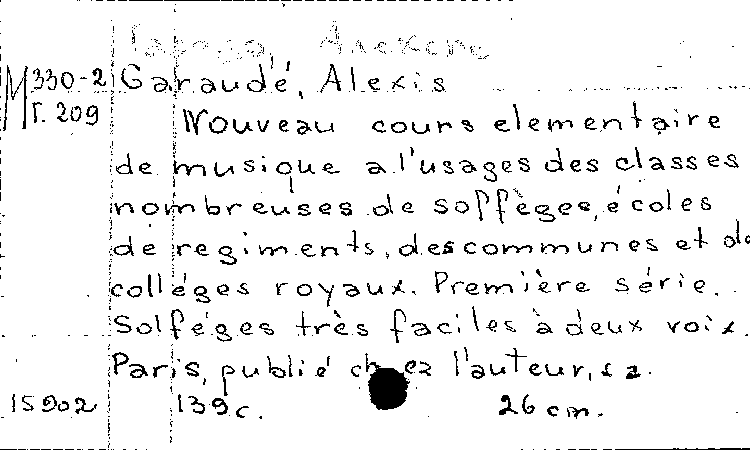 М 330-2 Garaudé, Alexis
Г. 209 Nouveau cours elementaire
de musique a l'usages des classes
nombreuses de solfèges, écoles
de regiments, des communes et de
colléges royaux. Première série.
Solféges très faciles à deux voix.
Paris, publié chez l'auteur, s a.
15902 139 c. 26 cm.